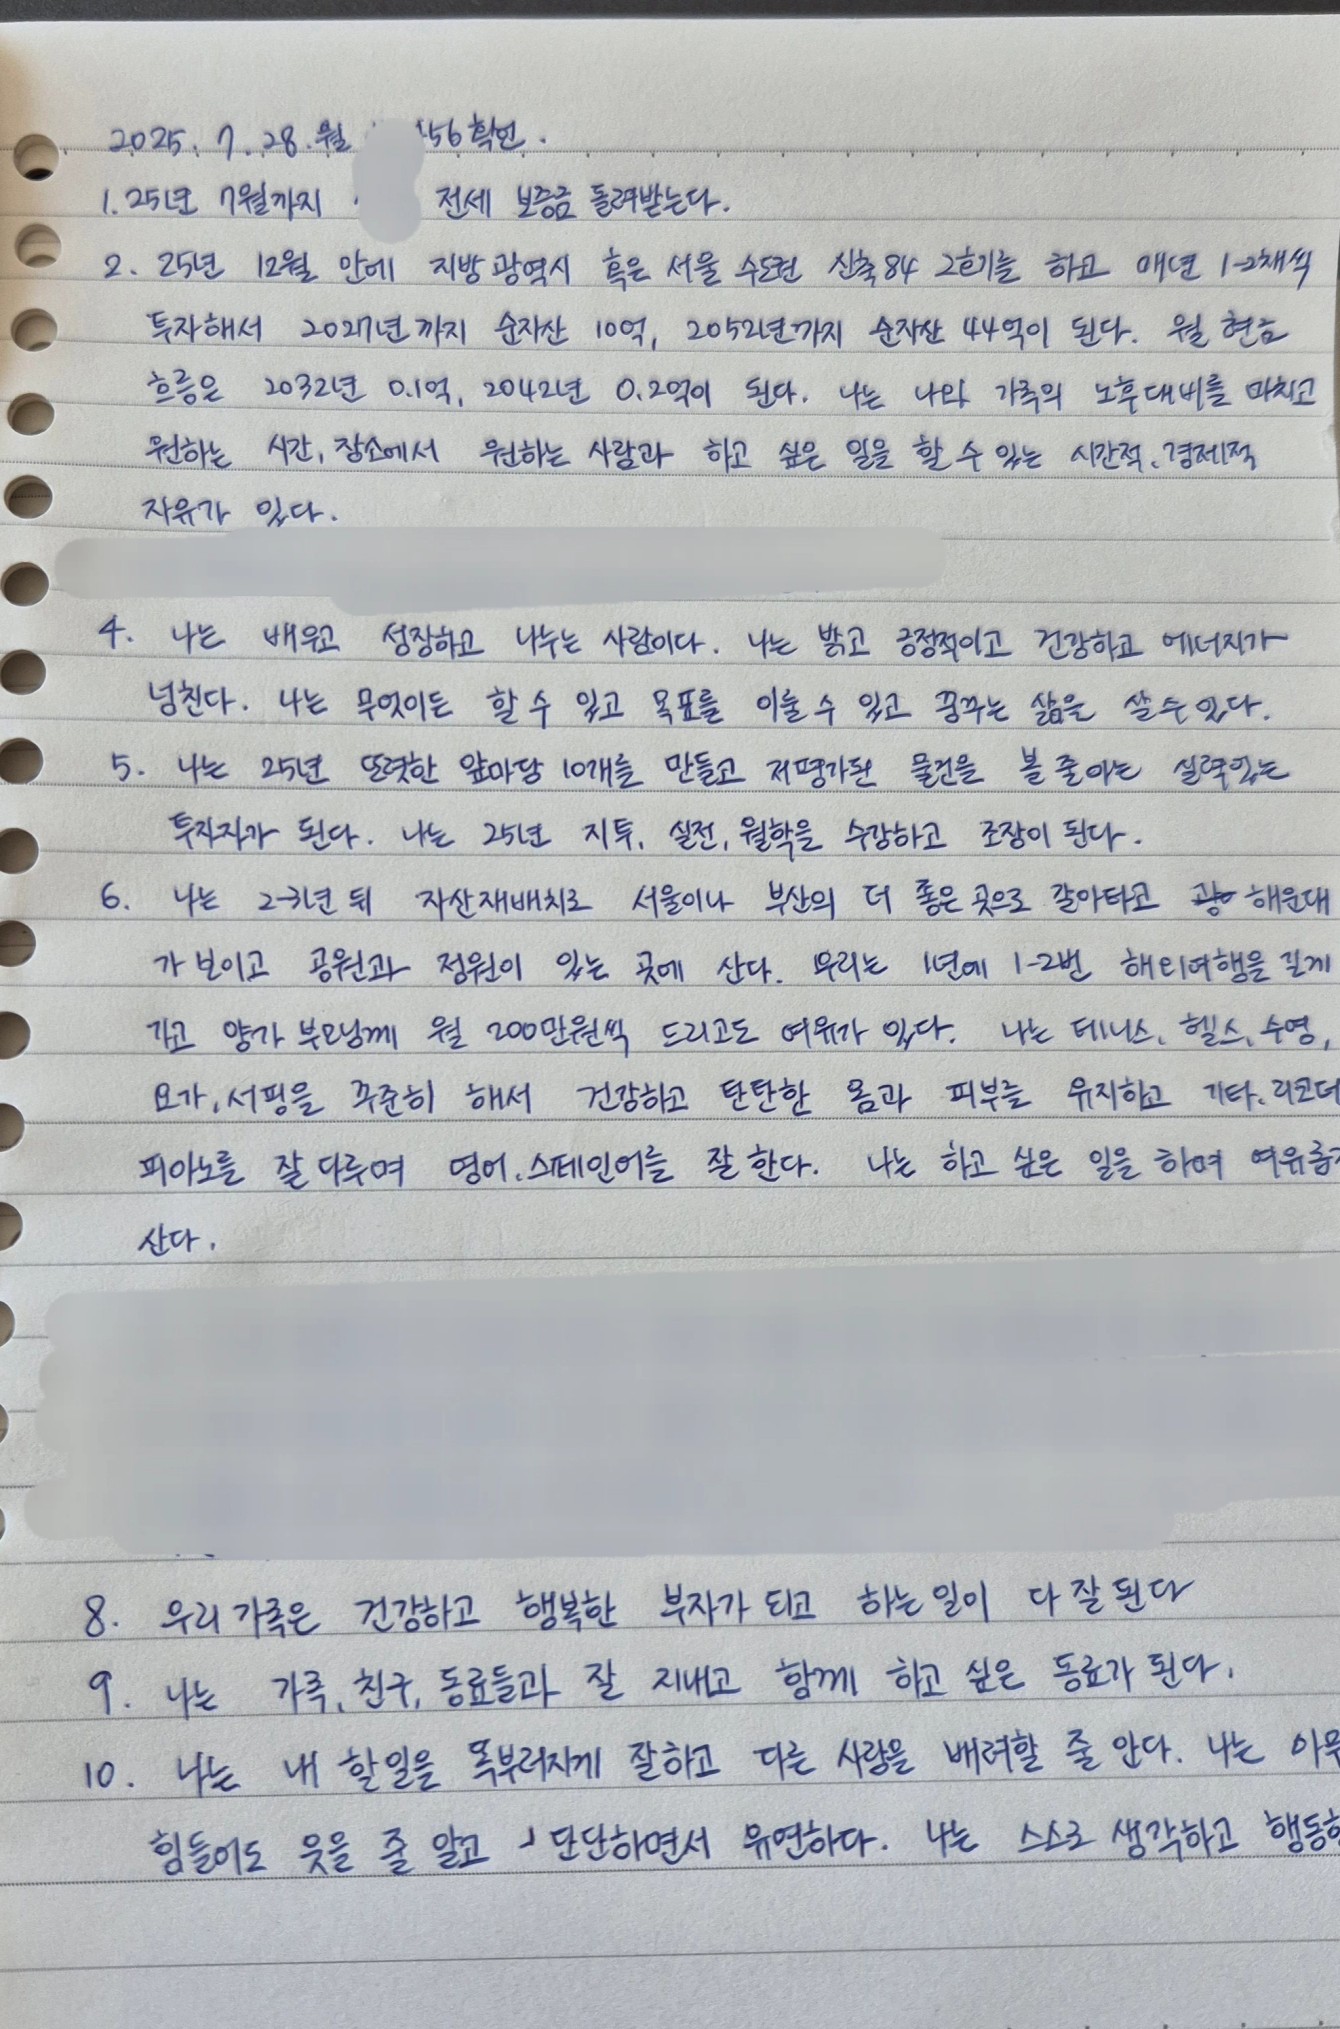 2025. 7. 28. 월 56 확언.
1. 25년 7월까지 전세 보증금 돌려받는다.
2. 25년 12월 안에 지방광역시 혹은 서울 수도권 신축84 2호기를 하고 매년 1-2채씩
투자해서 2027년까지 순자산 10억, 2052년까지 순자산 44억이 된다. 월 현금
흐름은 2032년 0.1억, 2042년 0.2억이 된다. 나는 나와 가족의 노후대비를 마치고
원하는 시간, 장소에서 원하는 사람과 하고 싶은 일을 할 수 있는 시간적, 경제적
자유가 있다.
4. 나는 배우고 성장하고 나누는 사람이다. 나는 밝고 긍정적이고 건강하고 에너지가
넘친다. 나는 무엇이든 할 수 있고 목표를 이룰 수 있고 꿈꾸는 삶을 살 수 있다.
5. 나는 25년 또렷한 앞마당 10개를 만들고 저평가된 물건을 볼 줄 아는 실력있는
투자자가 된다. 나는 25년 지투, 실전, 월학을 수강하고 조장이 된다.
6. 나는 2-3년 뒤 자산재배치로 서울이나 부산의 더 좋은 곳으로 갈아타고 해운대
가 보이고 공원과 정원이 있는 곳에 산다. 우리는 1년에 1-2번 해외여행을 길게
가고 양가 부모님께 월 200만원씩 드리고도 여유가 있다. 나는 테니스, 헬스, 수영,
요가, 서핑을 꾸준히 해서 건강하고 탄탄한 몸과 피부를 유지하고 기타, 리코더
피아노를 잘 다루며 영어, 스페인어를 잘 한다. 나는 하고 싶은 일을 하며 여유롭게
산다.
8. 우리 가족은 건강하고 행복한 부자가 되고 하는 일이 다 잘 된다
9. 나는 가족, 친구, 동료들과 잘 지내고 함께 하고 싶은 동료가 된다.
10. 나는 내 할일을 똑부러지게 잘하고 다른 사람을 배려할 줄 안다. 나는
힘들어도 웃을 줄 알고 단단하면서 유연하다. 나는 스스로 생각하고